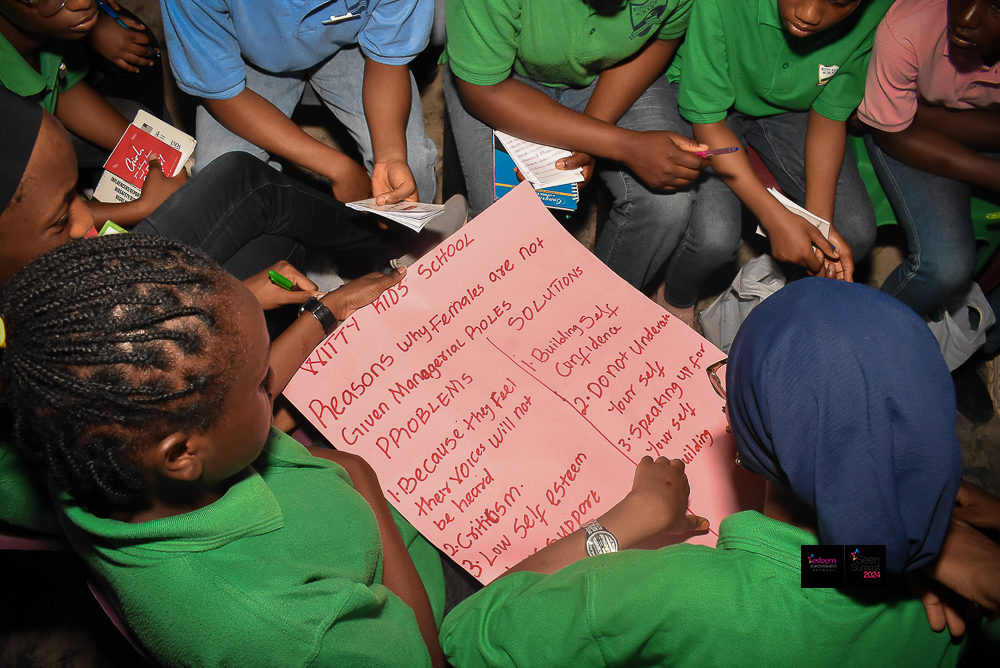 WITTY KIDS SCHOOL
Reasons why Females are not
Given Managerial Roles
PROBLEMS
1. Because they Feel
their voices will not
be heard
2. Criticism.
3. Low Self Esteem
Support
SOLUTIONS
1. Building Self
Confidence
2. Do Not Underate
Your self
3. Speaking up for
Your self
Building
esteem
EMPOWERMENT
NETWORK
Seen
Summit
2024